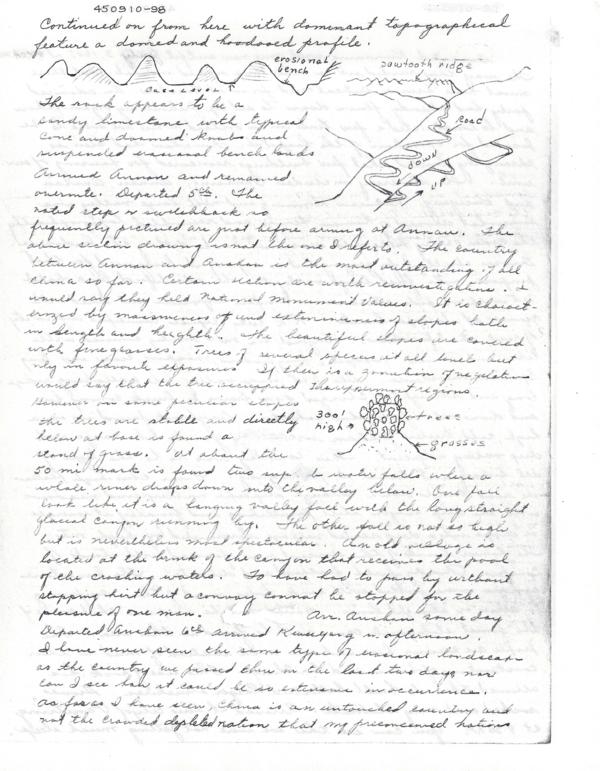 450910-98
Continued on from here with dominant topographical
feature a domed and hoodooed profile.
erosional
bench
Base Level
sawtooth ridge
road
DOWN
UP
The rock appears to be a
sandy limestone with typical
cone and doomed knobs and
suspended erosional bench lands
Arrived Annan and remained
overnite. Departed 5th. The
noted step or switchback so
frequently pictured are just before arriving at Annan. The
above section drawing is not the one I refer to. The country
between Annan and Anshan is the most outstanding of all
China so far. Certain section are worth reinvestigation. I
would say they held National Monument values. It is charact-
erized by massiveness of and extensiveness of slopes both
in length and heighth. The beautiful slopes are covered
with fine grasses. Trees of several species at all levels but
only in favorite exposures. If there is a zonation of vegetation
would say that the tree occupied the uppermost regions.
However on some peculiar slopes
the trees are stable and directly
below at base is found a
stand of grass. At about the
300'
high
trees
grasses
50 mi mark is found two superb water falls where a
whole river drops down into the valley below. One fall
look like it is a hanging valley fall with the long straight
glacial canyon running by. The other fall is not as high
but is nevertheless most spectacular. An old village is
located at the brink of the canyon that receives the pool
of the crashing waters. To have had to pass by without
stopping hurt but a convoy cannot be stopped for the
pleasure of one man. Arr. Anshan same day
Departed Anshan 6th arrived Kweiyang in afternoon.
I have never seen the same type of erosional landscape
as the country we passed thru in the last two days nor
can I see how it could be so extensive in occurrence.
As far as I have seen, China is an untouched country and
not the crowded depleted nation that my preconceived notions